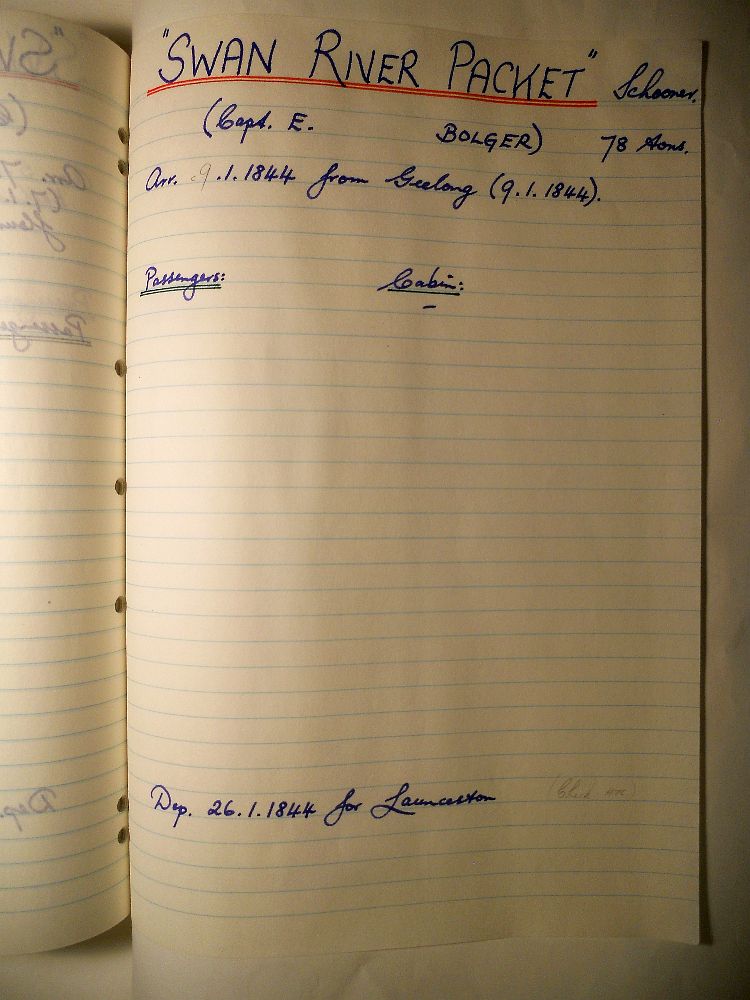 "SWAN RIVER PACKET" Schooner.
(Capt. E. BOLGER) 78 tons.
Arr. 9.1.1844 from Geelong (9.1.1844).
Passengers: Cabin:
–
Dep. 26.1.1844 for Launceston